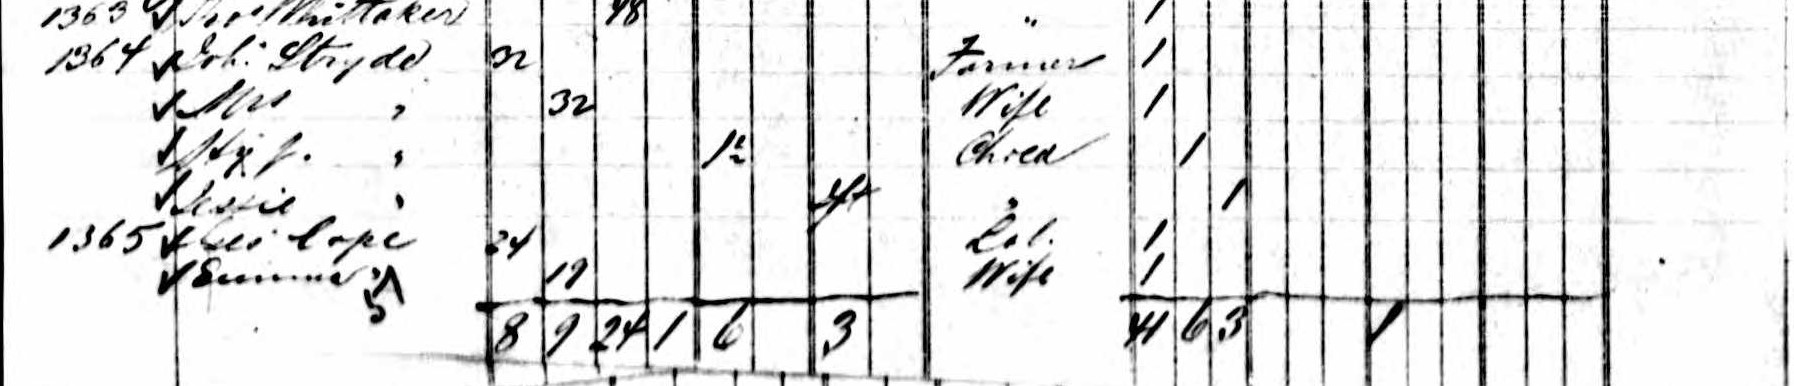 1363 Whittaker 48 " 1
1364 Joh. Stryde 32 Farmer 1
Mrs " 32 Wife 1
Hy J. " 1½ Child 1
Jessie " " 1
1365 Geo Cope 24 Lab. 1
Emma " 19 Wife 1
8 9 24 1 6 3 41 6 3 1